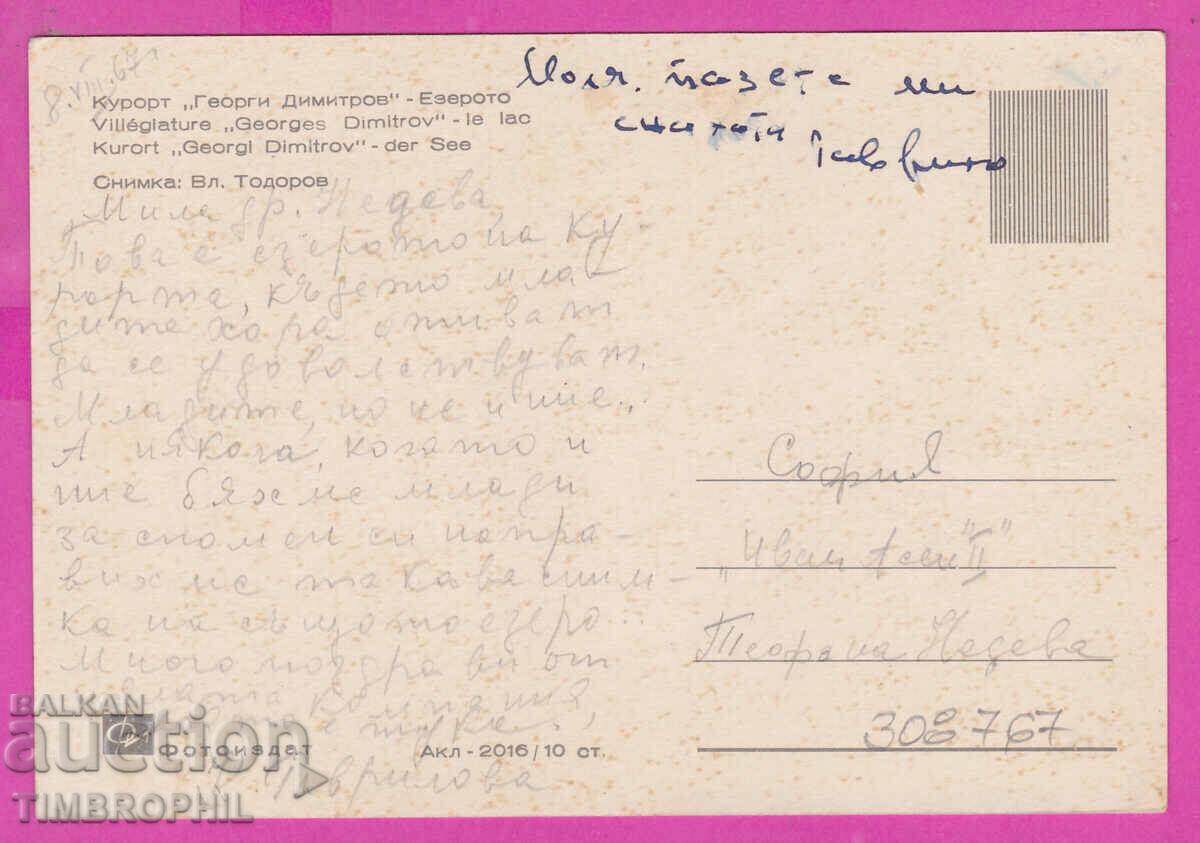 8.VIII.67
Моля, пазете ми
снимката
Курорт „Георги Димитров" - Езерото
Villégiature „Georges Dimitrov" - le lac
Kurort „Georgi Dimitrov" - der See
Снимка: Вл. Тодоров
Мила др. Недева,
Това е езерото на ку-
рорта, където мла-
дите хора отиват
да се удоволствуват.
Младите, но не и ние..
А някога, когато и
ние бяхме млади
за спомен си напра-
вихме такава сним-
ка на същото езеро...
Много поздрави от
компания,
Гаврилова
София
„Иван Асен II"
Теофана Недева
308767
Фотоиздат
Акл - 2016/10 ст.
BALKAN
auction
TIMBROPHIL